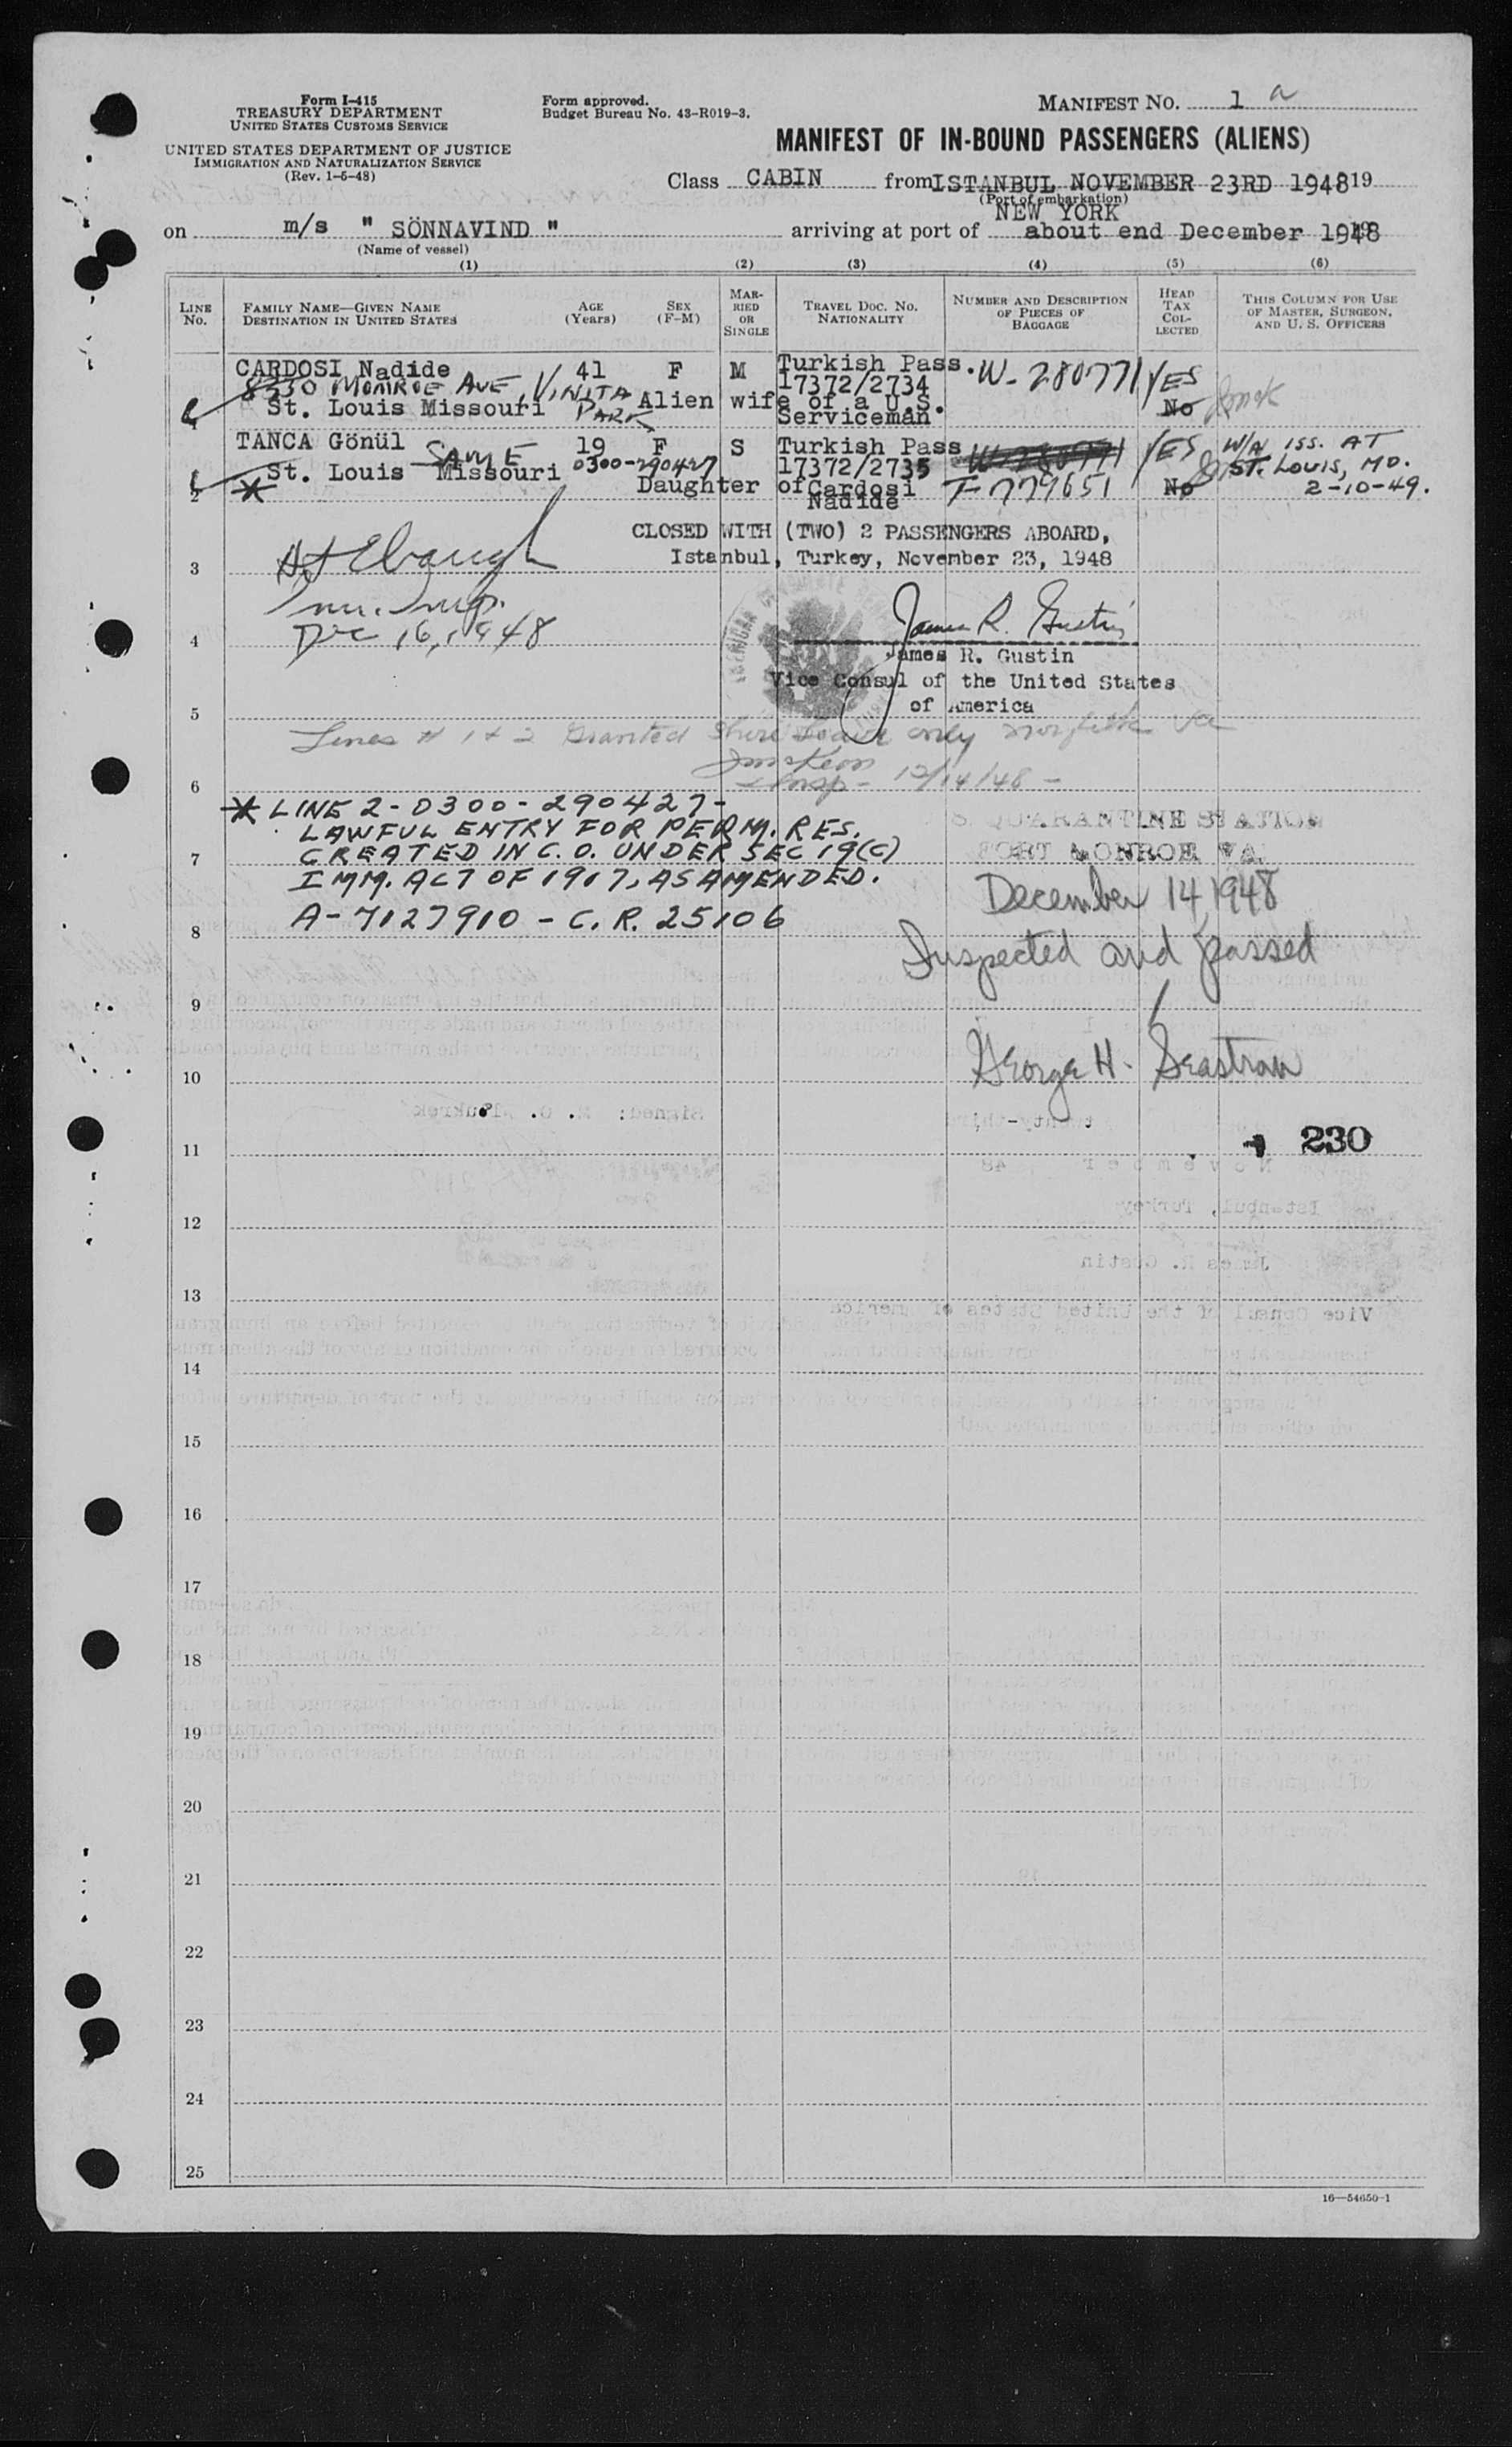 Form I-415
TREASURY DEPARTMENT
UNITED STATES CUSTOMS SERVICE
UNITED STATES DEPARTMENT OF JUSTICE
IMMIGRATION AND NATURALIZATION SERVICE
(Rev. 1-5-48)
Form approved.
Budget Bureau No. 43-R019-3.
MANIFEST NO. 1 a
MANIFEST OF IN-BOUND PASSENGERS (ALIENS)
Class CABIN from ISTANBUL NOVEMBER 23RD 1948 19
(Port of embarkation)
NEW YORK
on m/s " SÖNNAVIND " arriving at port of about end December 1948
(Name of vessel)
(1) (2) (3) (4) (5) (6)
LINE No.
FAMILY NAME—GIVEN NAME
DESTINATION IN UNITED STATES
AGE (Years)
SEX (F-M)
MARRIED OR SINGLE
TRAVEL DOC. NO.
NATIONALITY
NUMBER AND DESCRIPTION OF PIECES OF BAGGAGE
HEAD TAX COLLECTED
THIS COLUMN FOR USE OF MASTER, SURGEON, AND U. S. OFFICERS
CARDOSI Nadide 41 F M Turkish Pass. W-280771 YES
8330 MONROE AVE, VINITA PARK 17372/2734
St. Louis Missouri Alien wife of a U.S. No
1 Serviceman
TANCA Gönül SAME 19 F S Turkish Pass W-280771 YES W/A ISS. AT
St. Louis Missouri 0300-290427 17372/2735 ST. LOUIS, MO.
2 * Daughter of Cardosi T-779651 No 2-10-49.
Nadide
CLOSED WITH (TWO) 2 PASSENGERS ABOARD,
3 Istanbul, Turkey, November 23, 1948
Imm. Insp.
4 Dec 16, 1948
James R. Gustin
James R. Gustin
Vice Consul of the United States
5 of America
Lines # 1 + 2 Granted Shore Leave only Norfolk Va
6 Insp- 12/14/48 -
* LINE 2 - 0300-290427-
LAWFUL ENTRY FOR PERM. RES.
7 CREATED IN C.O. UNDER SEC 19(C)
IMM. ACT OF 1917, AS AMENDED.
8 A-7127910 - C.R. 25106
S. QUARANTINE STATION
FORT MONROE VA.
December 14, 1948
Inspected and passed
9
10 George H. Seastrom
11 230
12
13
14
15
16
17
18
19
20
21
22
23
24
25
16—54650-1